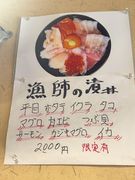 漁師の漬丼
平目 ホタテ イクラ タコ
マグロ カエビ つぶ貝
サーモン カジキマグロ イカ
2000円 限定有